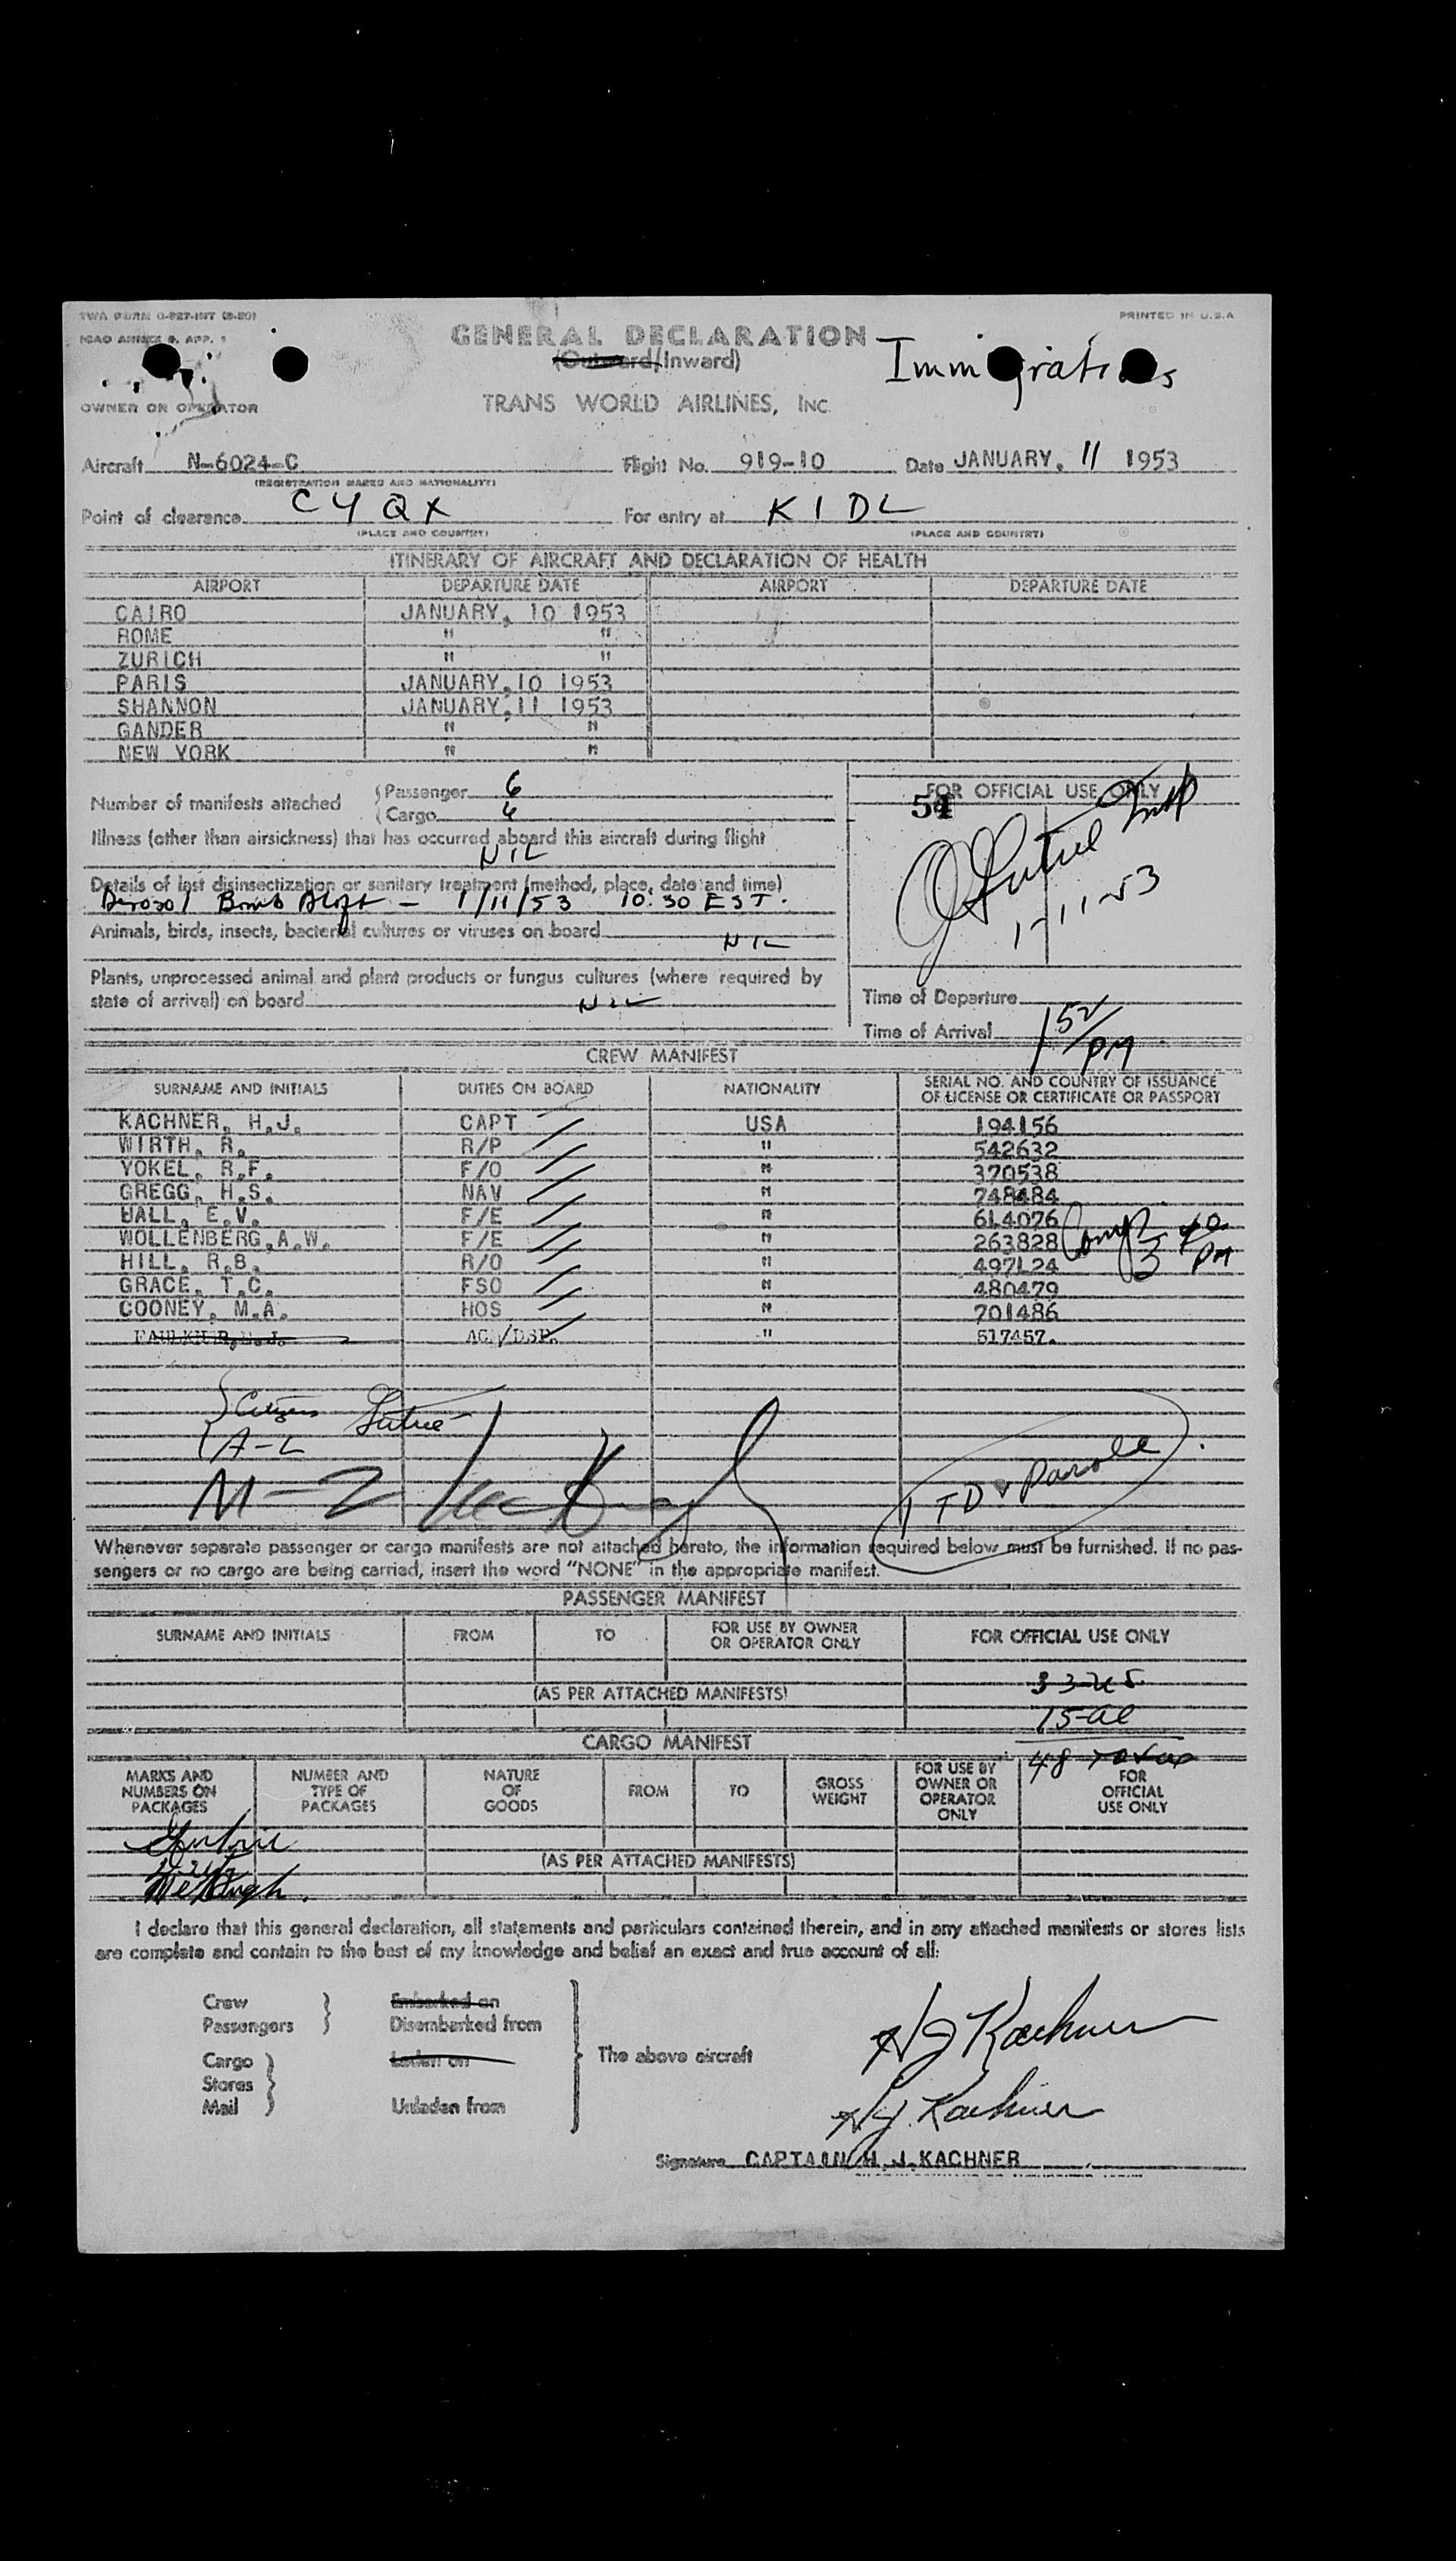 TWA FORM O-827-INT (8-50)
PRINTED IN U.S.A
ICAO ANNEX 9, APP. 1
GENERAL DECLARATION
(Outward/Inward)
Immigrations
OWNER OR OPERATOR
TRANS WORLD AIRLINES, INC.
Aircraft N-6024-C Flight No. 919-10 Date JANUARY, 11 1953
(REGISTRATION MARKS AND NATIONALITY)
Point of clearance CYQX For entry at KIDL
(PLACE AND COUNTRY) (PLACE AND COUNTRY)
ITINERARY OF AIRCRAFT AND DECLARATION OF HEALTH
AIRPORT DEPARTURE DATE AIRPORT DEPARTURE DATE
CAIRO JANUARY, 10 1953
ROME " "
ZURICH " "
PARIS JANUARY,10 1953
SHANNON JANUARY,11 1953
GANDER " "
NEW YORK " "
Number of manifests attached { Passenger 6
{ Cargo 6
FOR OFFICIAL USE ONLY
54
Illness (other than airsickness) that has occurred aboard this aircraft during flight
NIL
Details of last disinsectization or sanitary treatment (method, place, date and time)
Aerosol Bomb Aloft - 1/11/53 10:30 EST.
1-11-53
Animals, birds, insects, bacterial cultures or viruses on board
NIL
Plants, unprocessed animal and plant products or fungus cultures (where required by
state of arrival) on board NIL
Time of Departure
Time of Arrival 1 52/PM
CREW MANIFEST
SURNAME AND INITIALS DUTIES ON BOARD NATIONALITY SERIAL NO. AND COUNTRY OF ISSUANCE OF LICENSE OR CERTIFICATE OR PASSPORT
KACHNER, H.J. CAPT USA 194156
WIRTH, R. R/P " 542632
YOKEL, R.F. F/O " 370538
GREGG, H.S. NAV " 748484
HALL, E.V. F/E " 614076
WOLLENBERG,A.W. F/E " 263828
HILL, R.B. R/O " 497124
GRACE, T.C. FSO " 480479
COONEY, M.A. HOS " 701486
AC/DSP. " 517457.
Comp 3 40 PM
Citizens
A-L
M-2
1 TD & Parole
Whenever separate passenger or cargo manifests are not attached hereto, the information required below must be furnished. If no pas-
sengers or no cargo are being carried, insert the word "NONE" in the appropriate manifest.
PASSENGER MANIFEST
SURNAME AND INITIALS FROM TO FOR USE BY OWNER OR OPERATOR ONLY FOR OFFICIAL USE ONLY
33-US
(AS PER ATTACHED MANIFESTS)
15-al
CARGO MANIFEST
48
MARKS AND NUMBERS ON PACKAGES NUMBER AND TYPE OF PACKAGES NATURE OF GOODS FROM TO GROSS WEIGHT FOR USE BY OWNER OR OPERATOR ONLY FOR OFFICIAL USE ONLY
(AS PER ATTACHED MANIFESTS)
I declare that this general declaration, all statements and particulars contained therein, and in any attached manifests or stores lists
are complete and contain to the best of my knowledge and belief an exact and true account of all:
Crew Embarked on
Passengers Disembarked from
Cargo Laden on
Stores
Mail Unladen from
The above aircraft
HJ Kachner
H.J. Kachner
Signature CAPTAIN H. J. KACHNER